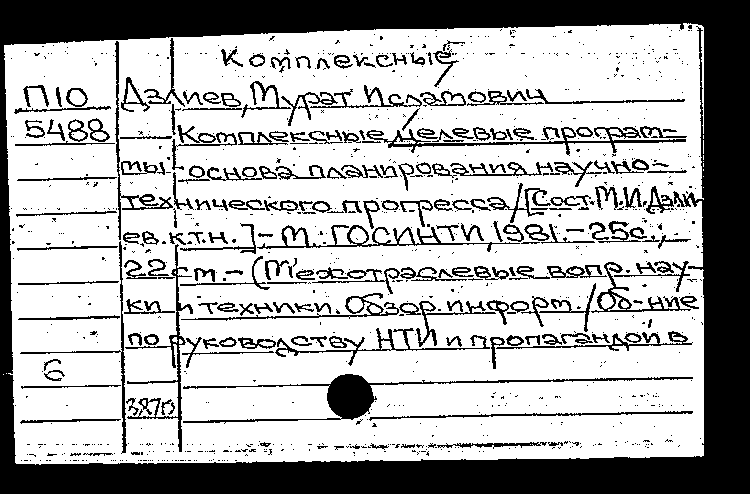 Комплексные
П10 Дзлиев, Мурат Исламович
5488 Комплексные целевые програм-
мы - основа планирования научно-
технического прогресса / [Сост. М.И. Дзли-
ев. к.т.н.] - М.: ГОСИНТИ, 1981. - 25с.;
22см. - (Межотраслевые вопр. нау-
ки и техники. Обзор. информ. / Об-ние
по руководству НТИ и пропагандой в
6